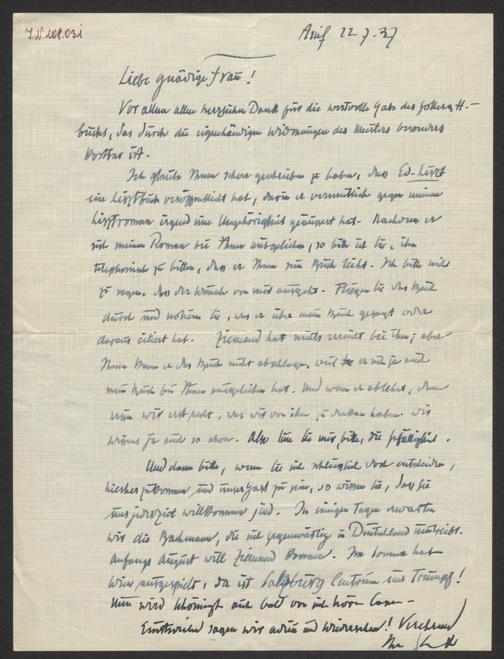 J.N. 108.031
Anif 22-7-37
Liebe gnädige Frau!
Vor allem allerherzlichen Dank für die wertvolle Gabe des
buchs, das durch die eigenhändigen Widmungen des Meisters besonders
kostbar ist.
Ich glaube Ihnen schon geschrieben zu haben, dass Ed. Liszt
ein Lisztbuch veröffentlicht hat, darin er vermutlich gegen meinen
Lisztroman irgend eine Ungehörigkeit geäussert hat. Nachdem er
sich meinen Roman bei Ihnen ausgeliehen, so bitte ich Sie, ihn
telephonisch zu bitten, dass er Ihnen sein Buch leiht. Ich bitte nicht
zu sagen, dass der Wunsch von mir ausgeht. Fliegen Sie das Buch
durch und notieren Sie, was er über mein Buch gesagt oder
daraus citiert hat. Ziemand hat nichts erreicht bei ihm; aber
Ihnen kann er das Buch nicht abschlagen, weil er sich ja auch
mein Buch bei Ihnen ausgeliehen hat. Und wenn er ablehnt, dann
wissen wir erst recht, was wir von ihm zu denken haben. Wir
wissens ja auch so schon. Also tun Sie mir, bitte, die Gefälligkeit.
Und dann bitte, wenn Sie sich schliesslich doch entscheiden,
hierherzukommen und unser Gast zu sein, so wissen Sie, dass Sie
uns jederzeit willkommen sind. In einigen Tagen erwarten
wir die Bachmann, die sich gegenwärtig in Deutschland
Anfangs August will Ziemand kommen. Im Sommer hat
Wien ausgespielt, da ist Salzburg Centrum und Trumpf!
Nun wird auch bald von sich hören lassen –
Einstweilen sagen wir adieu und Wiedersehen! Verehrend
Ihr